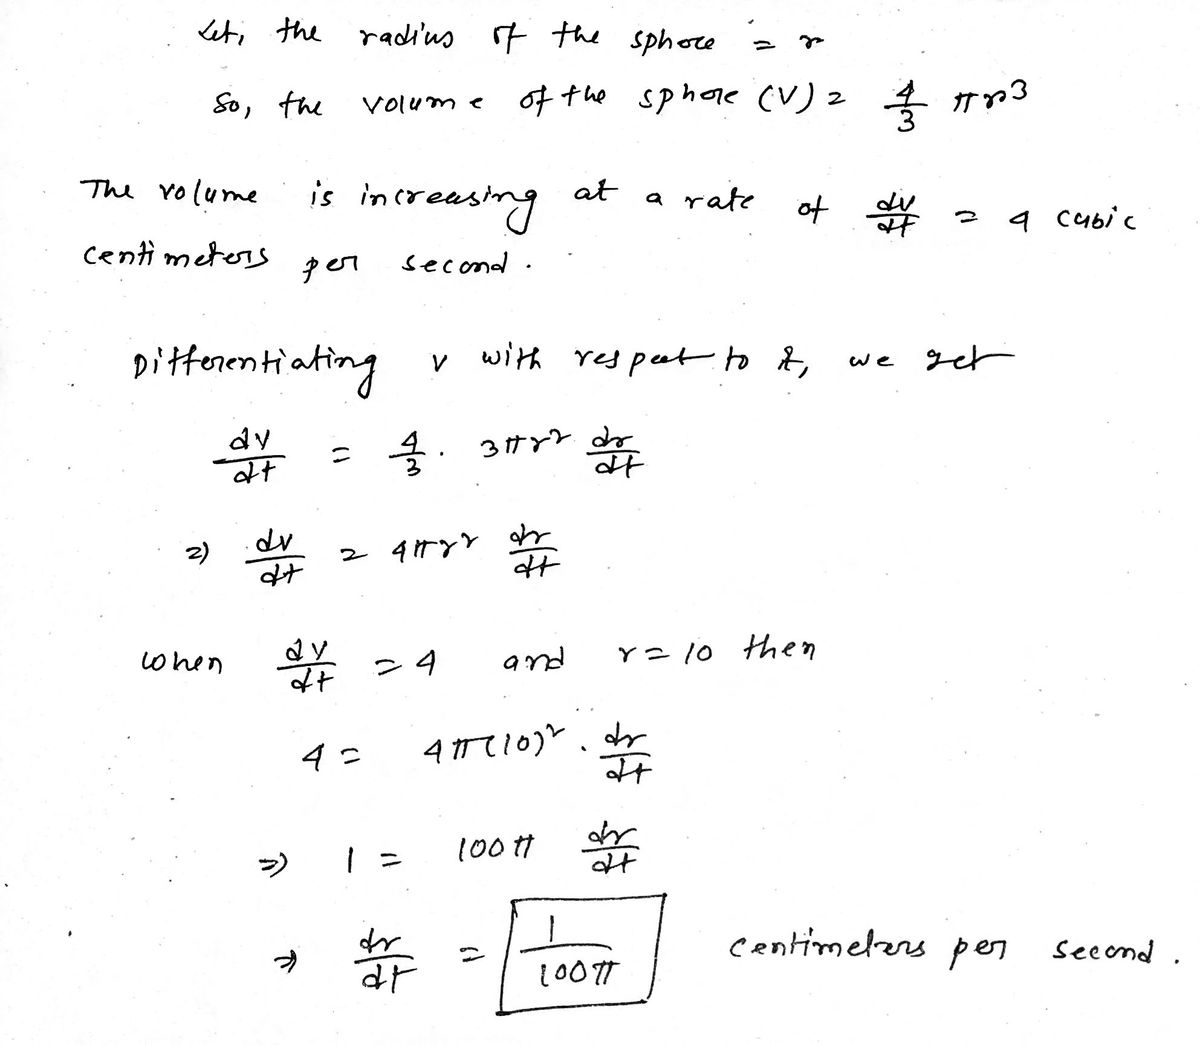 Let, the radius of the sphere = r
So, the volume of the sphere (V) = 4/3 πr³
The volume is increasing at a rate of dv/dt = 4 cubic
centimeters per second.
Differentiating v with respect to t, we get
dv/dt = 4/3 . 3πr² dr/dt
⇒ dv/dt = 4πr² dr/dt
when dv/dt = 4 and r = 10 then
4 = 4π(10)² . dr/dt
⇒ 1 = 100π dr/dt
⇒ dr/dt = 1/100π centimeters per second.